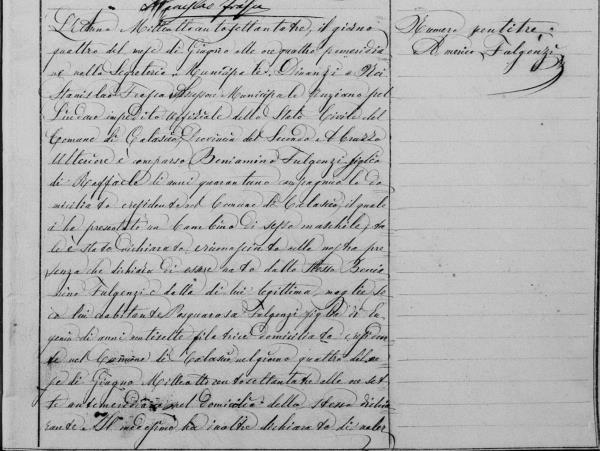 L'Anno Milleottocentosettantatre, il giorno
quattro del mese di Giugno alle ore quattro pomeridia
ne nella Segreteria Municipale. Dinanzi a Noi
Stanislao Frasca Assessore Municipale Anziano pel
Sindaco impedito Uffiziale dello Stato Civile del
Comune di Calascio, Provincia del Secondo Abruzzo
Ulteriore è comparso Beniamino Fulgenzi figlio
di Raffaele di anni quarantuno campagnuolo do
miciliato e residente nel Comune di Calascio, il quale
ci ha presentato un bambino di sesso maschile, ta
le è stato dichiarato, e riconosciuto nella nostra pre
senza che dichiara di essere nato dallo stesso Benia
mino Fulgenzi e dalla di lui legittima moglie se
co lui abitante Pasquarosa Fulgenzi figlia di
di anni ventisette filatrice domiciliata e residen
te nel Comune di Calascio, nel giorno quattro del me
se di Giugno Milleottocentosettantatre alle ore set
te antimeridiane nel domicilio della stessa dichia
rante. Il medesimo ha inoltre dichiarato di voler
Numero ventitre.
Americo Fulgenzi